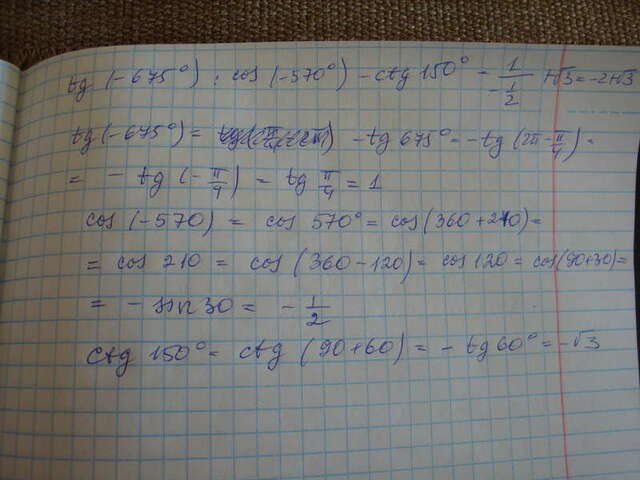 tg (-675°) : cos (-570°) - ctg 150° = 1/(-1/2) + √3 = -2+√3
tg (-675°) = -tg 675° = -tg (2π - π/4) =
= - tg (-π/4) = tg π/4 = 1
cos (-570) = cos 570° = cos (360+210) =
= cos 210 = cos (360-120) = cos 120 = cos(90+30) =
= - sin 30 = - 1/2
ctg 150° = ctg (90+60) = - tg 60° = -√3